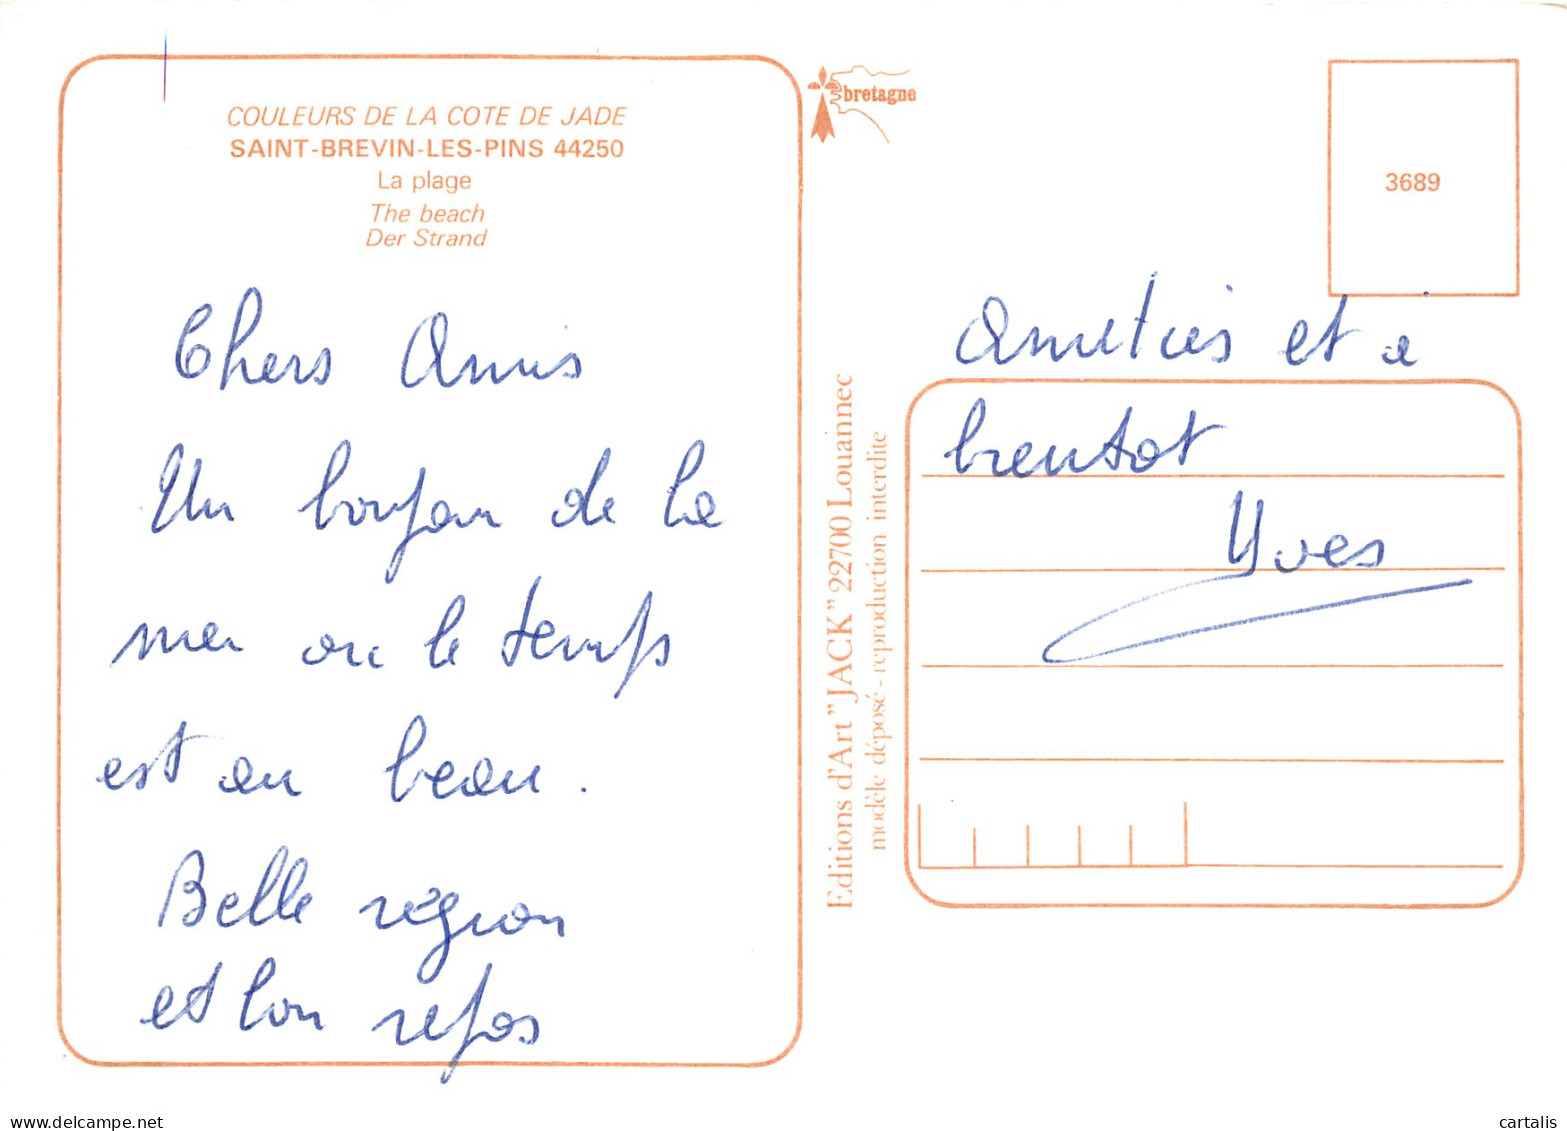 COULEURS DE LA COTE DE JADE
SAINT-BREVIN-LES-PINS 44250
La plage
The beach
Der Strand
Chers Amis
Un bonjour de la
mer ou le temps
est au beau.
Belle région
et bon repos
bretagne
3689
Amitiés et a
bientot
Yves
Editions d'Art "JACK" 22700 Louannec
modèle déposé - reproduction interdite
www.delcampe.net
cartalis